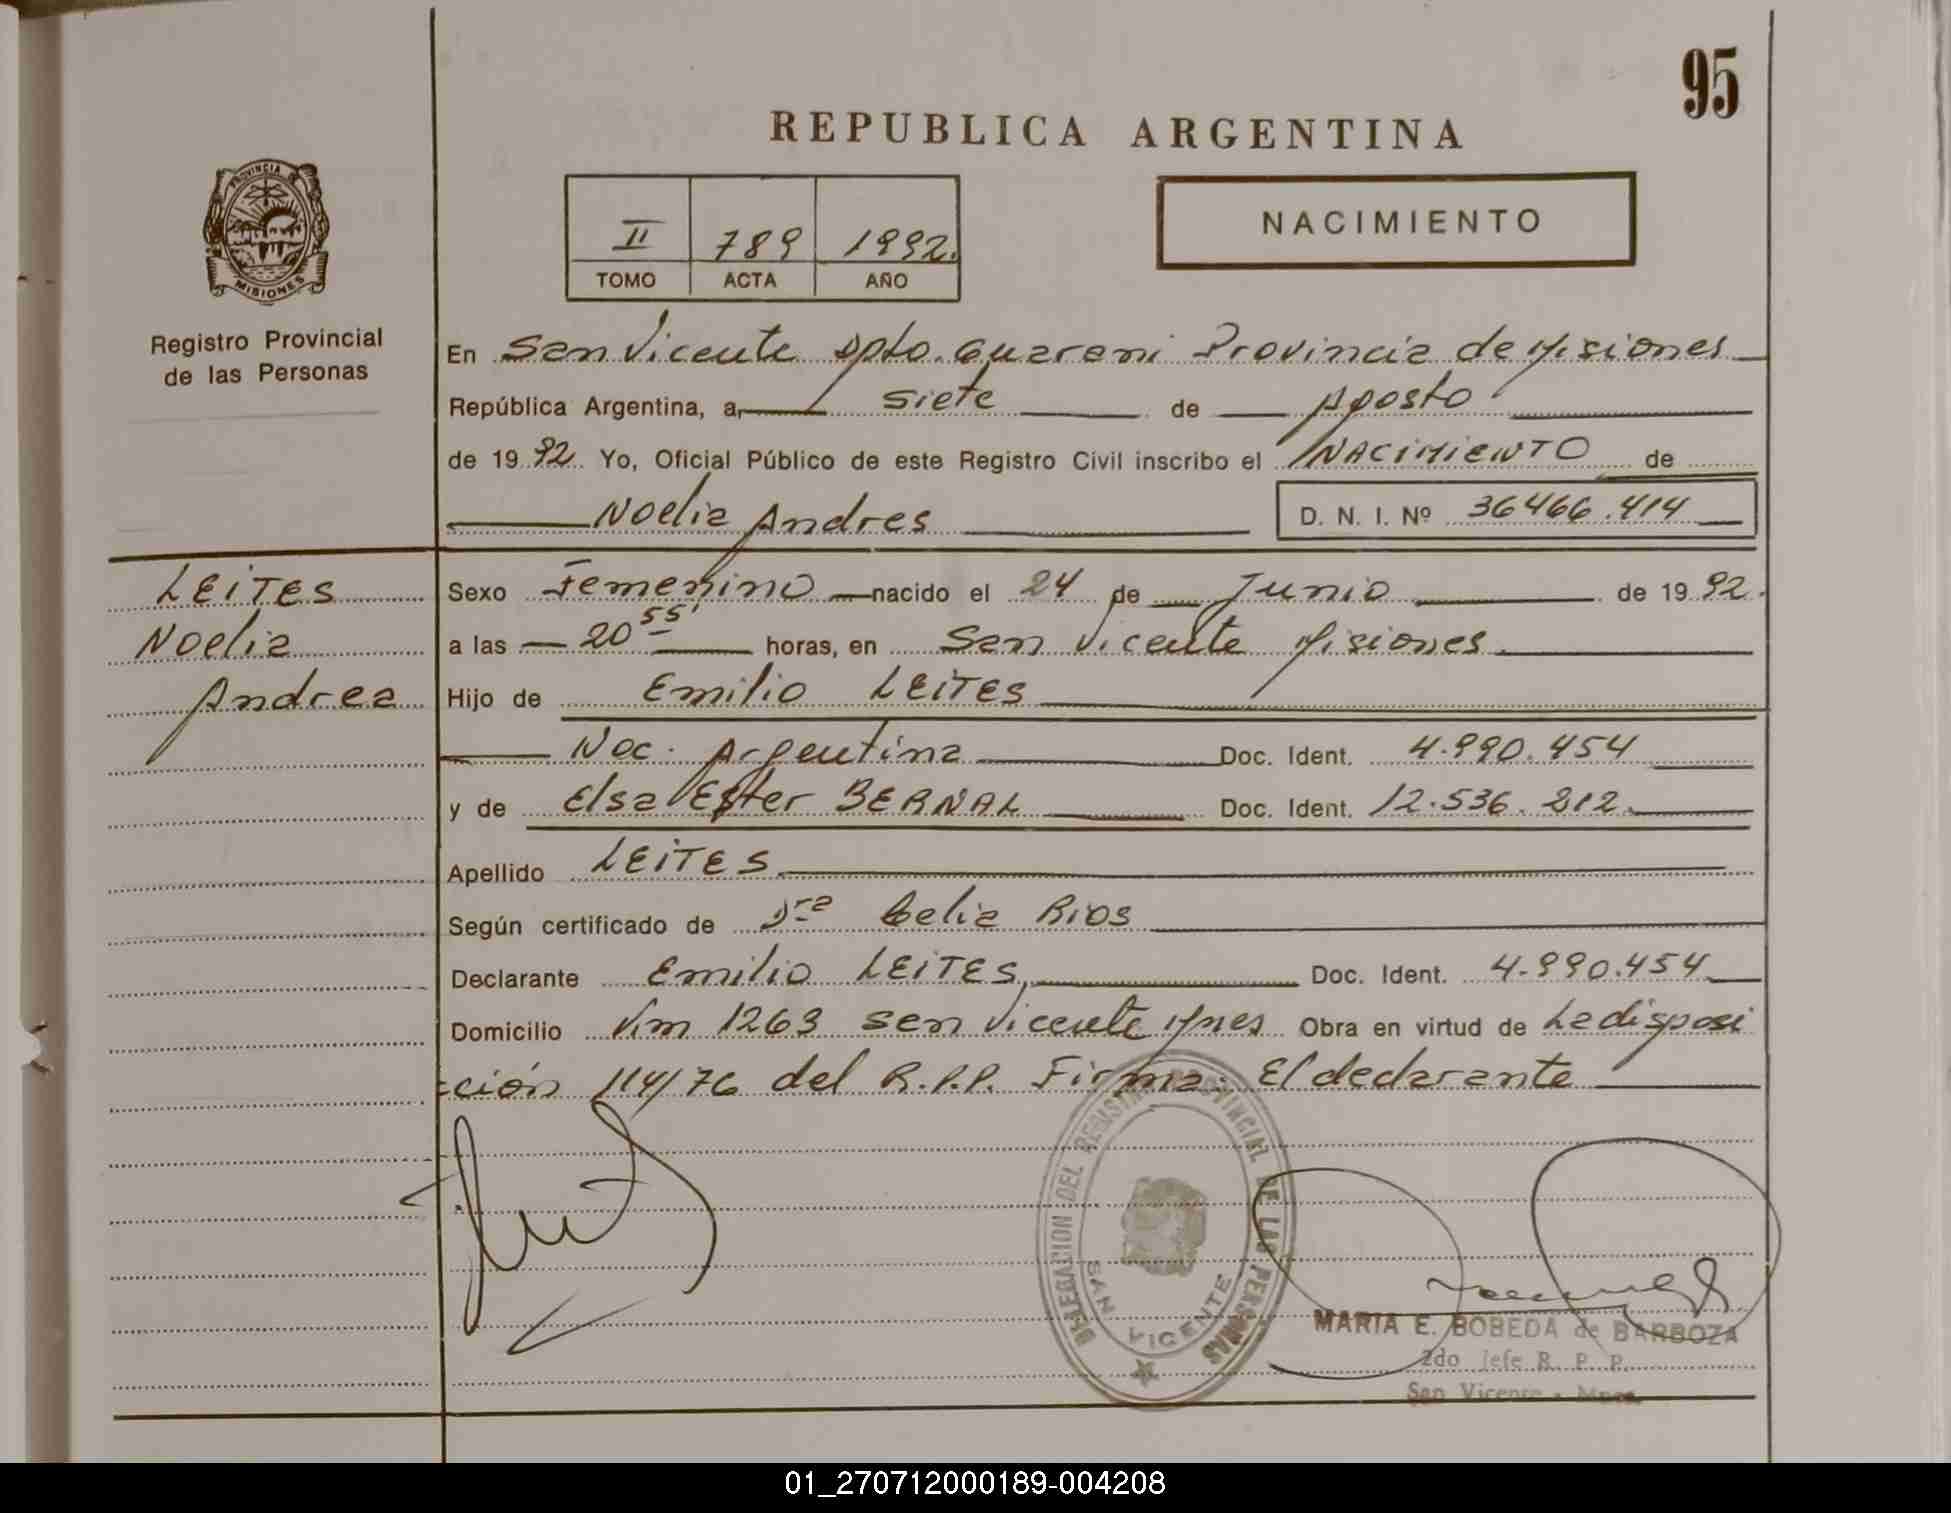 95
REPUBLICA ARGENTINA
PROVINCIA DE
MISIONES
II 789 1992.
TOMO ACTA AÑO
NACIMIENTO
Registro Provincial
de las Personas
En San Vicente Dpto. Guarani Provincia de Misiones
República Argentina, a, siete de Agosto
de 1992. Yo, Oficial Público de este Registro Civil inscribo el NACIMIENTO de
Noelia Andres
D. N. I. Nº 36466.414
LEITES
Noelia
Andrea
Sexo Femenino nacido el 24 de Junio de 1992.
a las 20 55' horas, en San Vicente Misiones.
Hijo de Emilio LEITES
Nac. Argentina Doc. Ident. 4.990.454
y de Elsa Ester BERNAL Doc. Ident. 12.536.212.
Apellido LEITES
Según certificado de Dra Celia Rios
Declarante Emilio LEITES, Doc. Ident. 4.990.454
Domicilio Km 1263 San Vicente Mnes Obra en virtud de La disposi
ción 114/76 del R.P.P. Firma: El declarante
DELEGACION DEL REGISTRO PROVINCIAL DE LAS PERSONAS
SAN VICENTE
MARIA E. BOBEDA de BARBOZA
2do Jefe R. P. P.
San Vicente - Mnes.
01_270712000189-004208